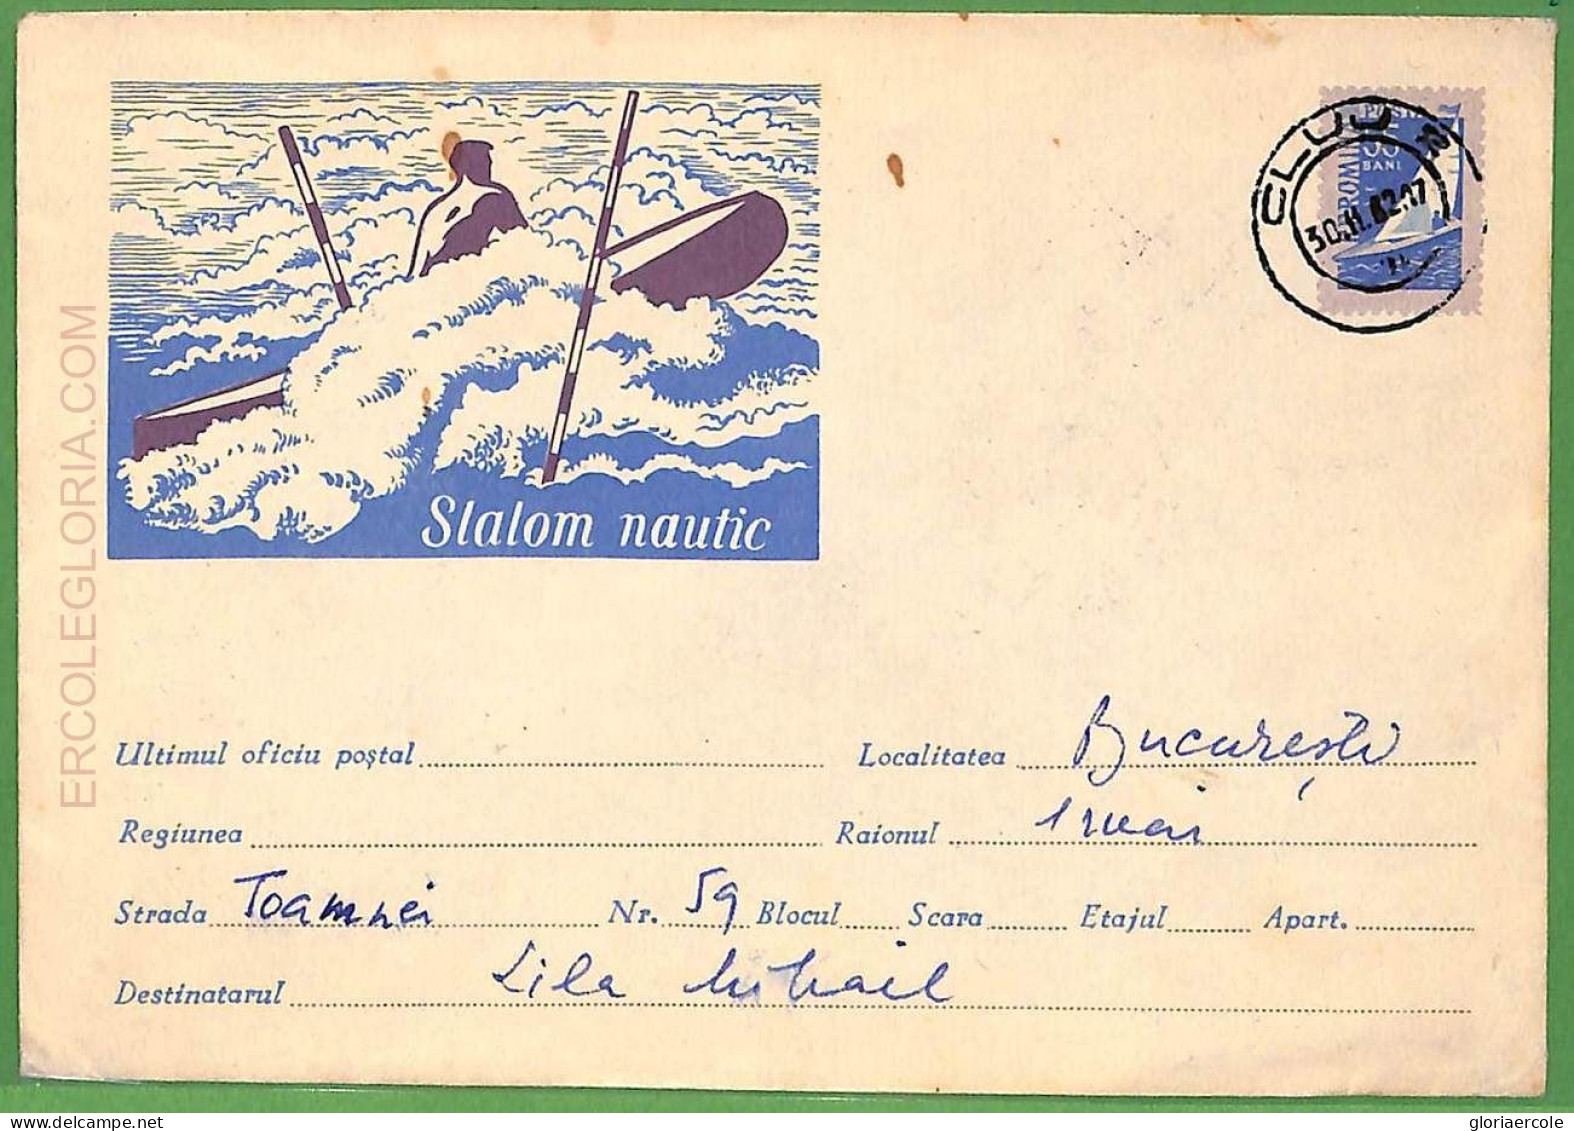 POSTA
55
BANI
ROMANA
CLUJ 2
30.11.62.17
Slalom nautic
ERCOLEGLORIA.COM
Ultimul oficiu poștal Localitatea București
Regiunea Raionul 1 mai
Strada Toamnei Nr. 59 Blocul Scara Etajul Apart.
Destinatarul Lila Mihail
gloriaercole